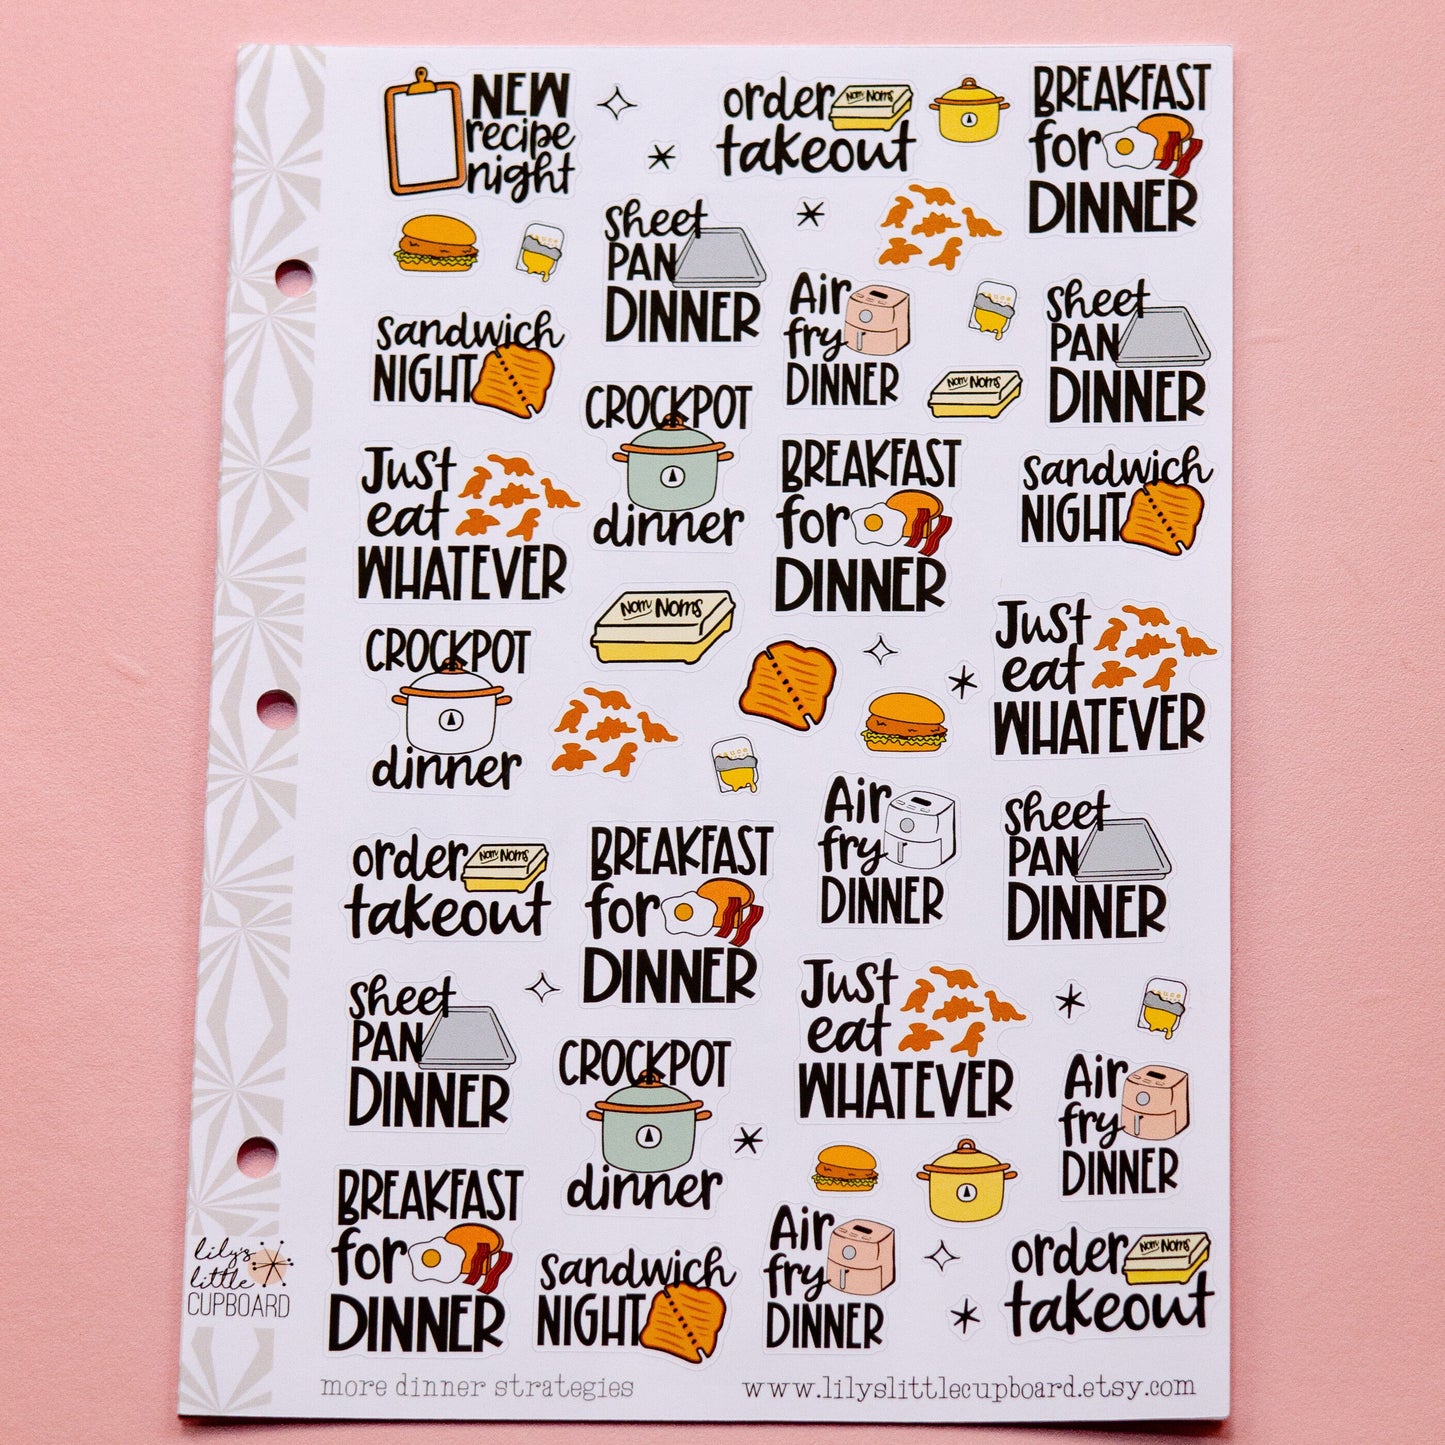 NEW
recipe
night
order
Nom Noms
takeout
BREAKFAST
for
DINNER
sheet
PAN
DINNER
sauce
Air
fry
DINNER
sauce
sheet
PAN
DINNER
sandwich
NIGHT
Nom Noms
CROCKPOT
dinner
Just
eat
WHATEVER
BREAKFAST
for
DINNER
sandwich
NIGHT
Nom Noms
Just
eat
WHATEVER
CROCKPOT
dinner
sauce
Air
fry
DINNER
sheet
PAN
DINNER
order
Nom Noms
takeout
BREAKFAST
for
DINNER
Just
eat
WHATEVER
sheet
PAN
DINNER
sauce
CROCKPOT
dinner
Air
fry
DINNER
BREAKFAST
for
DINNER
sandwich
NIGHT
Air
fry
DINNER
order
Nom Noms
takeout
lily's
little
CUPBOARD
more dinner strategies
www.lilyslittlecupboard.etsy.com